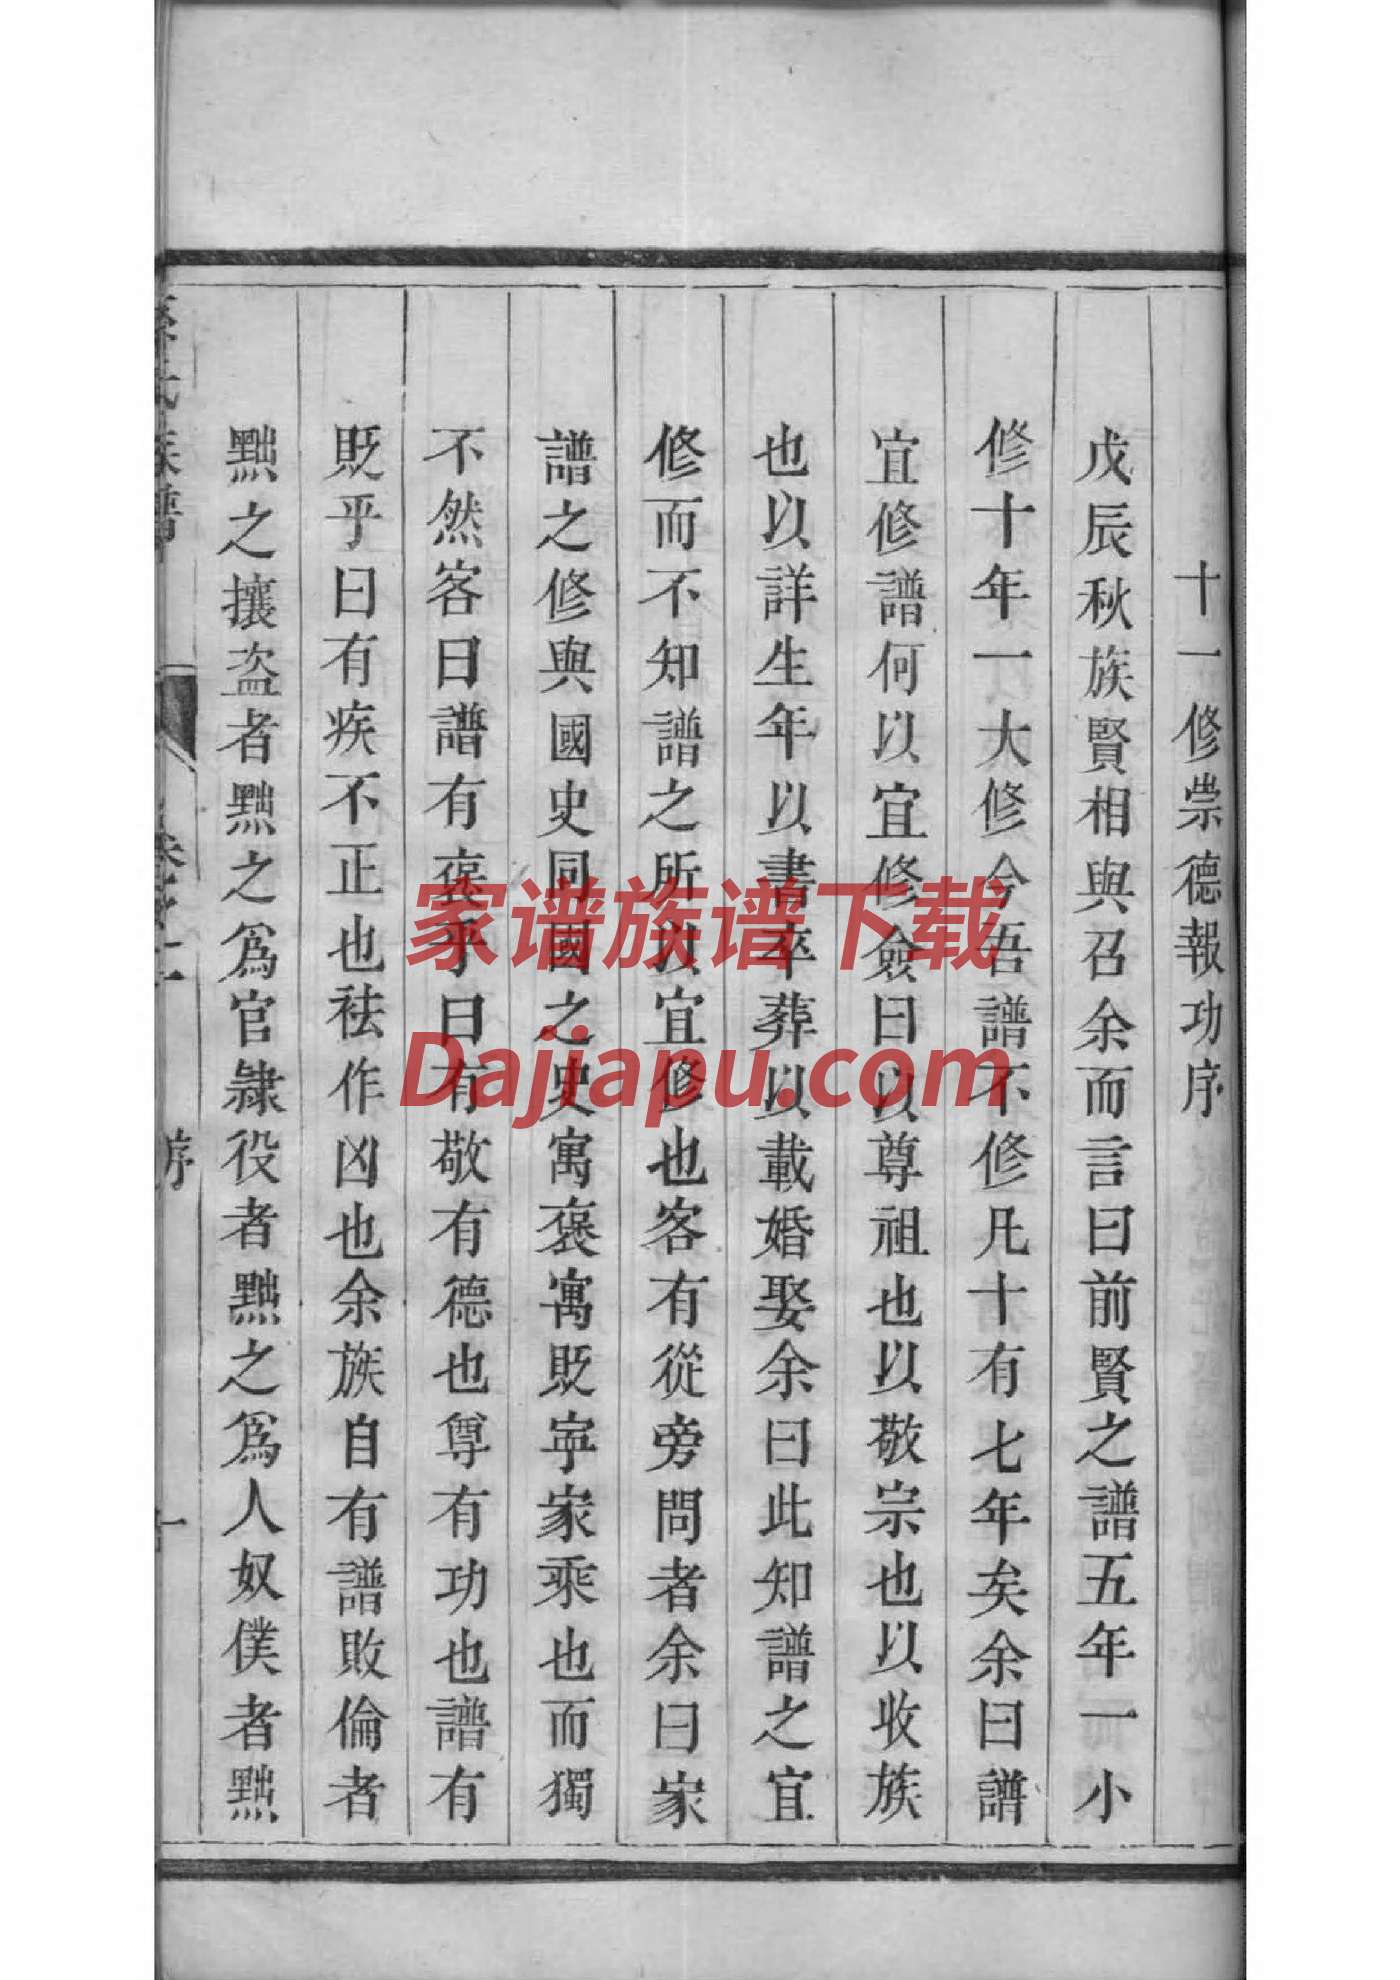 十一修崇德報功序
戊辰秋族賢相與召余而言曰前賢之譜五年一小
修十年一大修今吾譜不修凡十有七年矣余曰譜
宜修譜何以宜修僉曰以尊祖也以敬宗也以收族
也以詳生年以書卒葬以載婚娶余曰此知譜之宜
修而不知譜之所以宜修也客有從旁問者余曰家
譜之修與國史同國之史寓襃寓貶寕家乘也而獨
不然客曰譜有襃乎曰有敬有德也尊有功也譜有
貶乎曰有疾不正也祛作凶也余族自有譜敗倫者
黜之攘盜者黜之爲官隸役者黜之爲人奴僕者黜
氏族譜
序
家谱族谱下载
Dajiapu.com